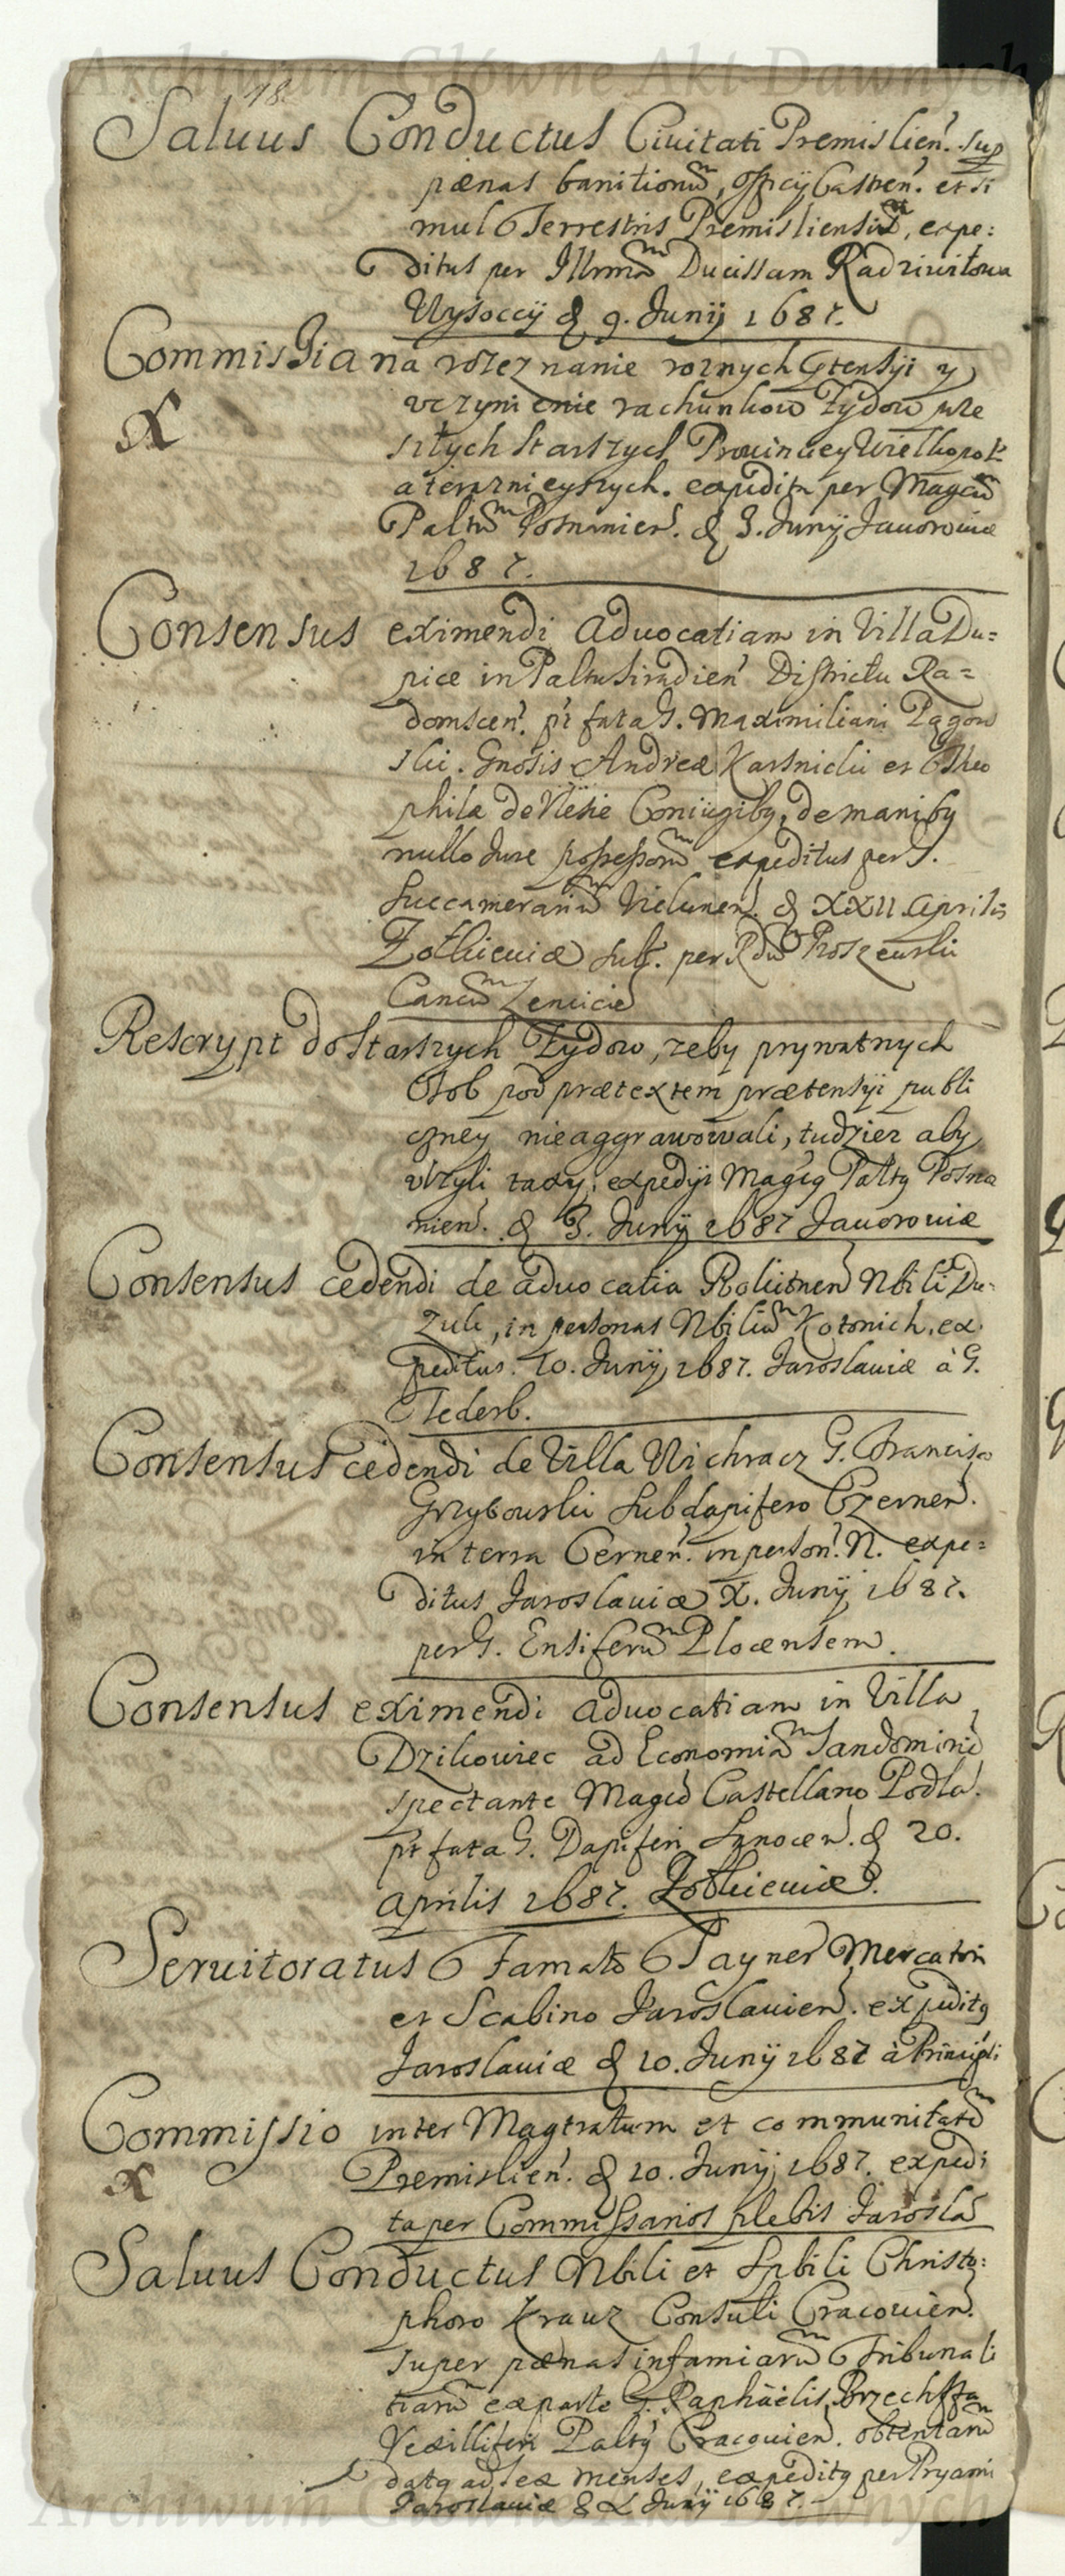 Archiwum Główne Akt Dawnych
78.
Saluus Conductus Ciuitati Premislien. sup
pænas banitionu, Officij Castren. et si
mul Terrestris Premisliensiu, expe:
ditus per Illrmã Ducissam Radziwiłowa
Wysoccÿ d 9. Junij 1687.
Commissia na rozeznanie roznych Ptensÿi y
vczynienie rachunkow Zydow prze
szłych starszych Prouincyey Wielkopol:
a teraznieyszych. expedita per Magcũ
Paltũ Posnanien. d 3. Junÿ Jauorouiæ
1687.
Consensus eximendi Aduocatiam in Villa Du=
pice in Paltu Siradien Districtu Ra=
domscen. pr fata G. Maximiliani Pągow
ski. Gnosis Andreæ Karsnicki et Theo
phila de Coniugiby, de maniby
nullo Jure possessorũ expeditus per G.
Succamerariũ Vielunen. d XXII Aprilis
Zołkieuiæ sub. per Rdũ Proszewski
Cancũ
Rescrypt do Starszych Zydow, zeby prywatnych
Osob pod prætextem prætensÿi publi
czney nieaggrawowali, tudziez aby
vlzyli taxy, expedÿt Magcg Paltg Posna
nien. d 3. Junÿ 1687 Jauorouiæ
Consensus cedendi de aduocatia Nbili Du-
zuk, in personas Nbiliũ Kotonich, ex
peditus. 10. Junÿ 1687. Jaroslauiæ à G.
Tederb.
Consensus cedendi de Villa Wichracz G. Francisco
Grzybowski Subdapifero Czernen.
in terra Cernen. in person. N. expe=
ditus Jaroslauiæ X. Junÿ 1687.
per G. Ensiferũ Plocensem.
Consensus eximendi aduocatiam in Villa
Dzikowiec ad Economiã Sandomirie
spectante Magco Castellano Podla.
pr fata G. Dapiferi Sanocen. d 20.
Aprilis 1687. Zołkieuiæ.
Seruitoratus Famato Tayner Mercatori
et Scabino Jaroslauien. expeditg
Jaroslauiæ d 10. Junÿ 1687 à Principli
Commissio inter Magtratum et communitatẽ
Premislien. d 10. Junÿ 1687. expedi
ta per Commissarios plebis Jarosla
Saluus Conductus Nbili et Spbili Christo:
phoro Krauz Consuli Cracouien.
super pænas infamiarũ Tribunali
tiarũ ex parte G. Raphaëlis Brzechffa
Vexilliferi Paltg Cracouien. obtentarũ
datg ad sex menses, expeditg per Pryami
Jaroslauiæ d X Junÿ 1687.
Archiwum Główne Akt Dawnych